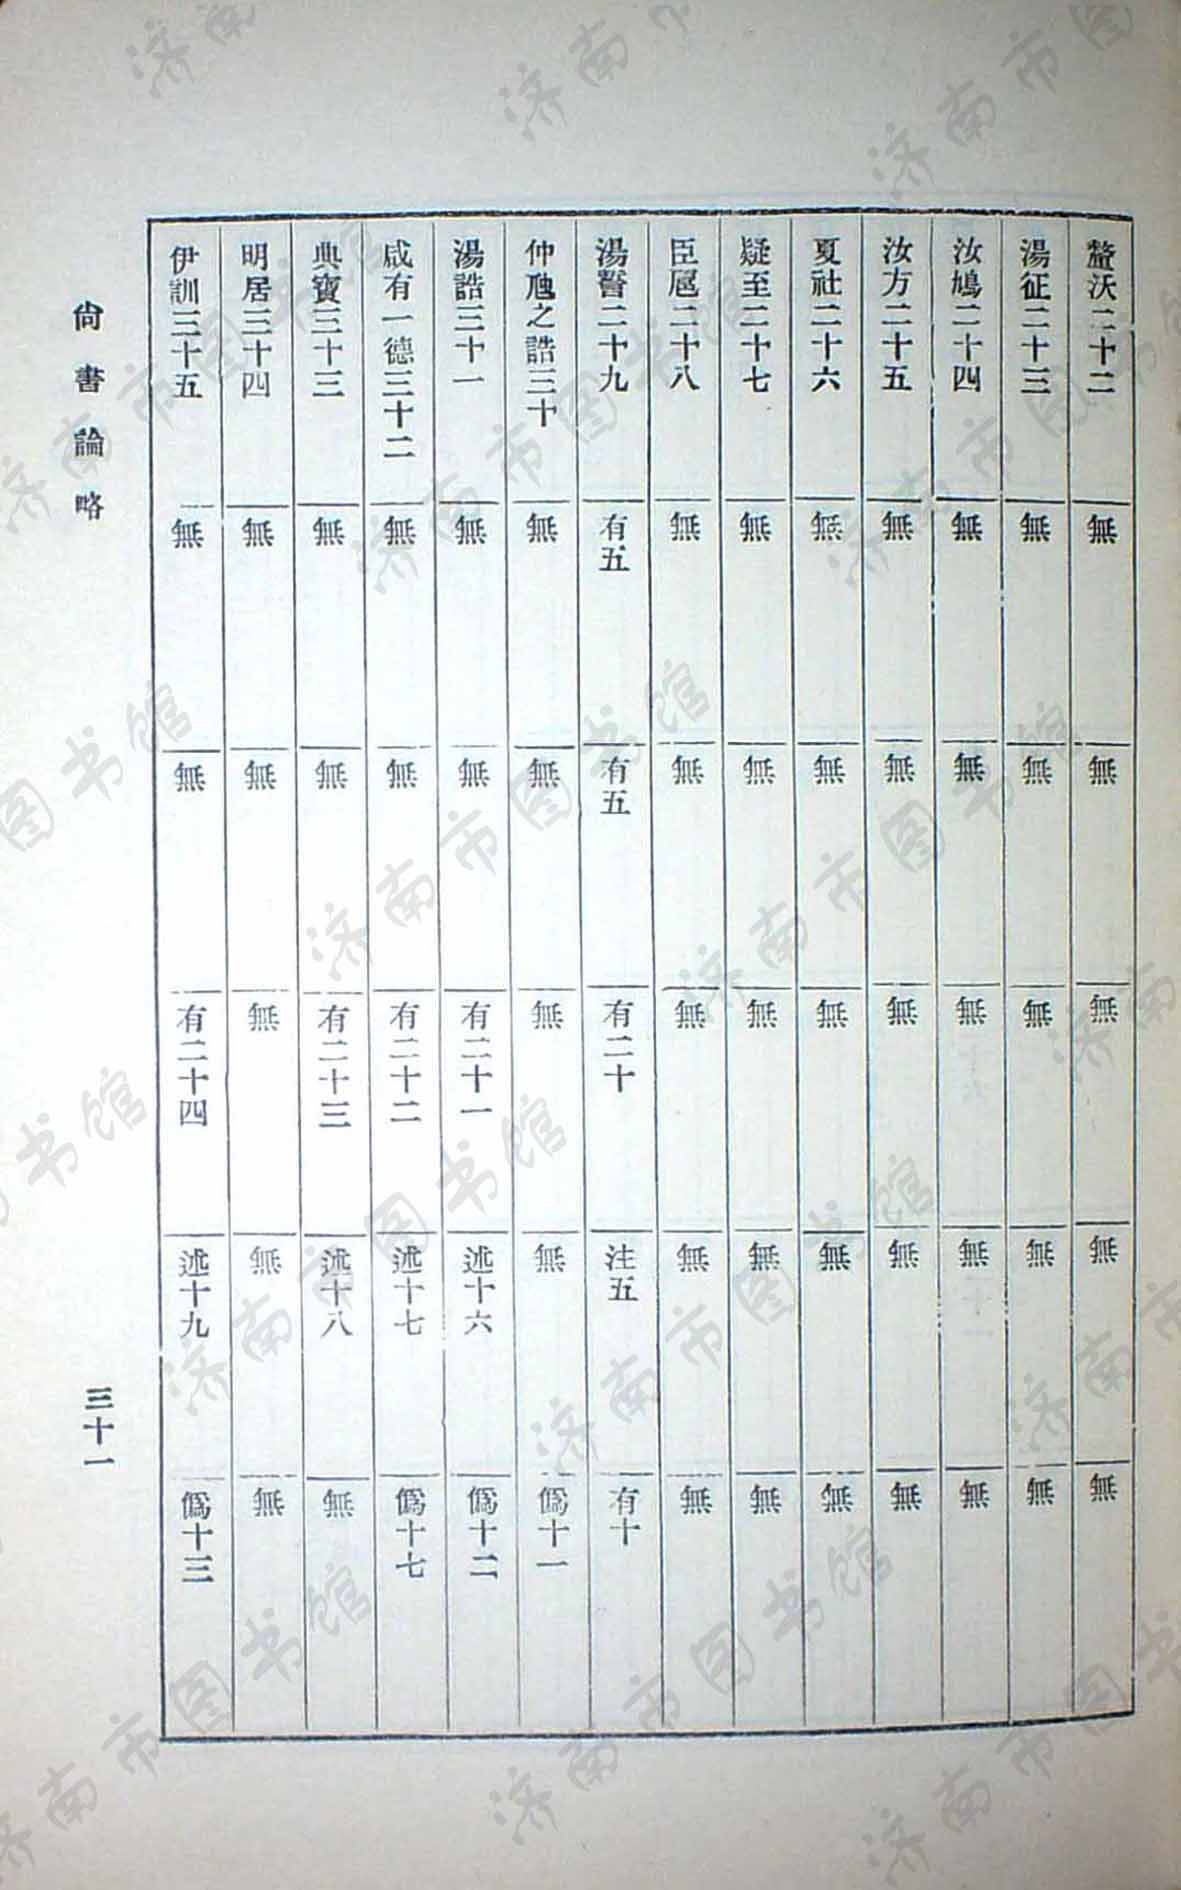 釐沃二十二 無 無 無 無 無
湯征二十三 無 無 無 無 無
汝鳩二十四 無 無 無 無 無
汝方二十五 無 無 無 無 無
夏社二十六 無 無 無 無 無
疑至二十七 無 無 無 無 無
臣扈二十八 無 無 無 無 無
湯誓二十九 有五 有五 有二十 注五 有十
仲虺之誥三十 無 無 無 無 僞十一
湯誥三十一 無 無 有二十一 述十六 僞十二
咸有一德三十二 無 無 有二十二 述十七 僞十七
典寶三十三 無 無 有二十三 述十八 無
明居三十四 無 無 無 無 無
伊訓三十五 無 無 有二十四 述十九 僞十三
尙書論略
三十一
济南市图书馆